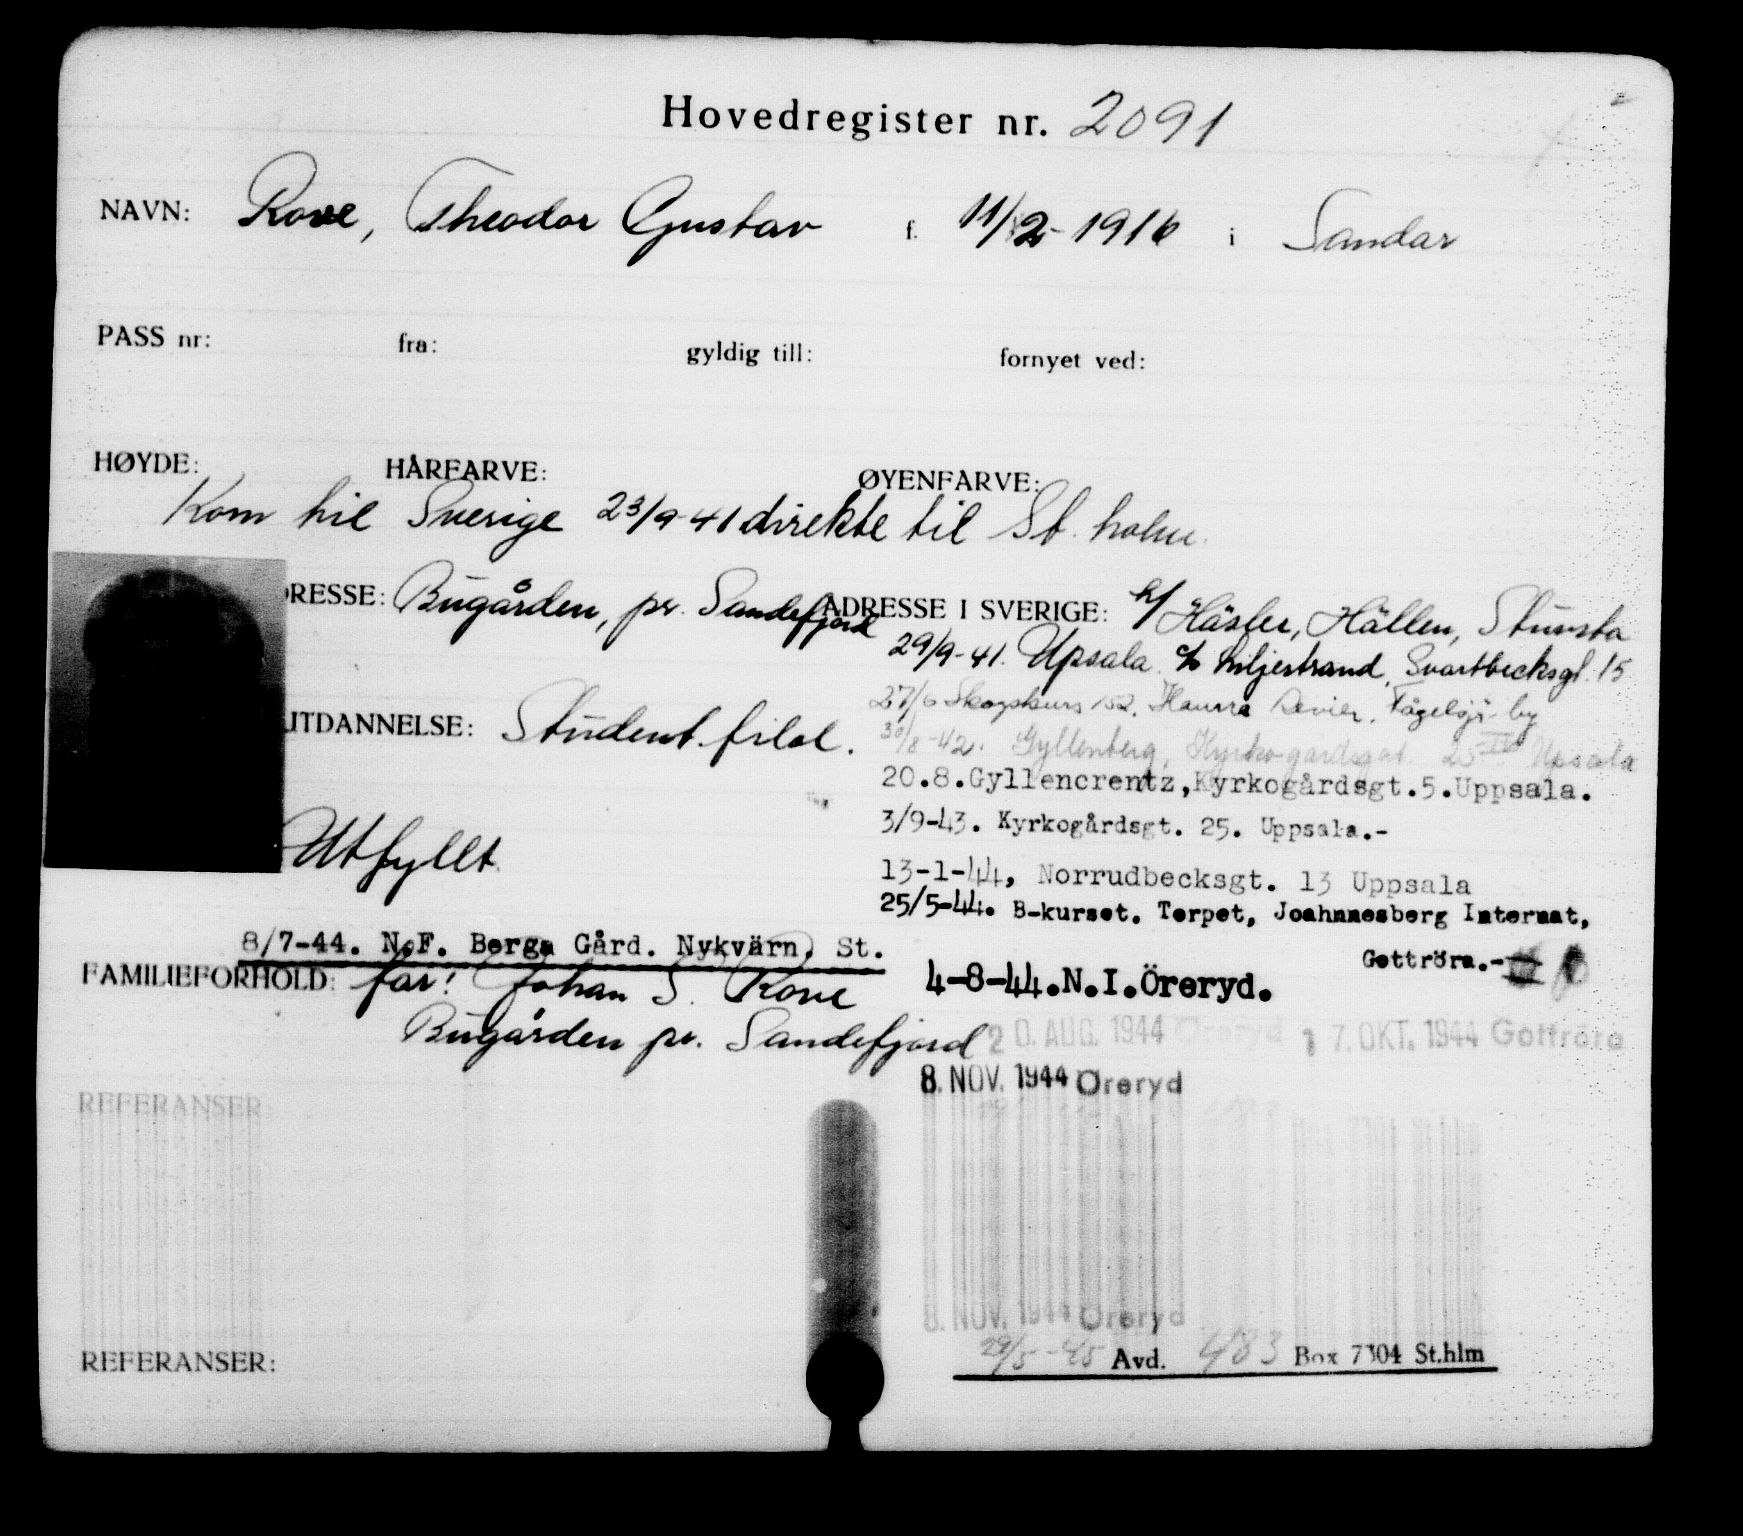 Hovedregister nr. 2091
NAVN: Rove, Theodor Gustav f. 11/2-1916 i Sandar
PASS nr: fra: gyldig till: fornyet ved:
HØYDE: HÅRFARVE: ØYENFARVE:
Kom til Sverige 23/9-41 direkte til St.holm.
RESSE: Bugården, pr. Sandefjord
ADRESSE I SVERIGE: Häsler, Hällen, Stursta
29/9-41. Upsala c/o Liljestrand, Svartbecksgt. 15
27/6 Skogskurs 152, Revier, Fågelsjö by
30/8-42. Gyllenberg, Kyrkogardsgat. 25 IV Upsala
UTDANNELSE: Student. filol.
20.8.Gyllencrentz,Kyrkogårdsgt.5.Uppsala.
3/9-43. Kyrkogårdsgt. 25. Uppsala.-
Utfyllt.
13-1-44, Norrudbecksgt. 13 Uppsala
25/5-44. B-kurset. Torpet, Joahnnesberg Internat,
Gottröra.-
8/7-44. N.F. Berga Gård. Nykvärn. St.
FAMILIEFORHOLD: far: Johan S. Rove
Bugården pr. Sandefjord
4-8-44.N.I.Öreryd.
20. AUG. 1944 Öreryd 17. OKT. 1944 Gottröra
8. NOV. 1944 Öreryd
REFERANSER
8. NOV. 1944 Öreryd
REFERANSER:
29/5-45 Avd. 483 Box 7304 St.hlm